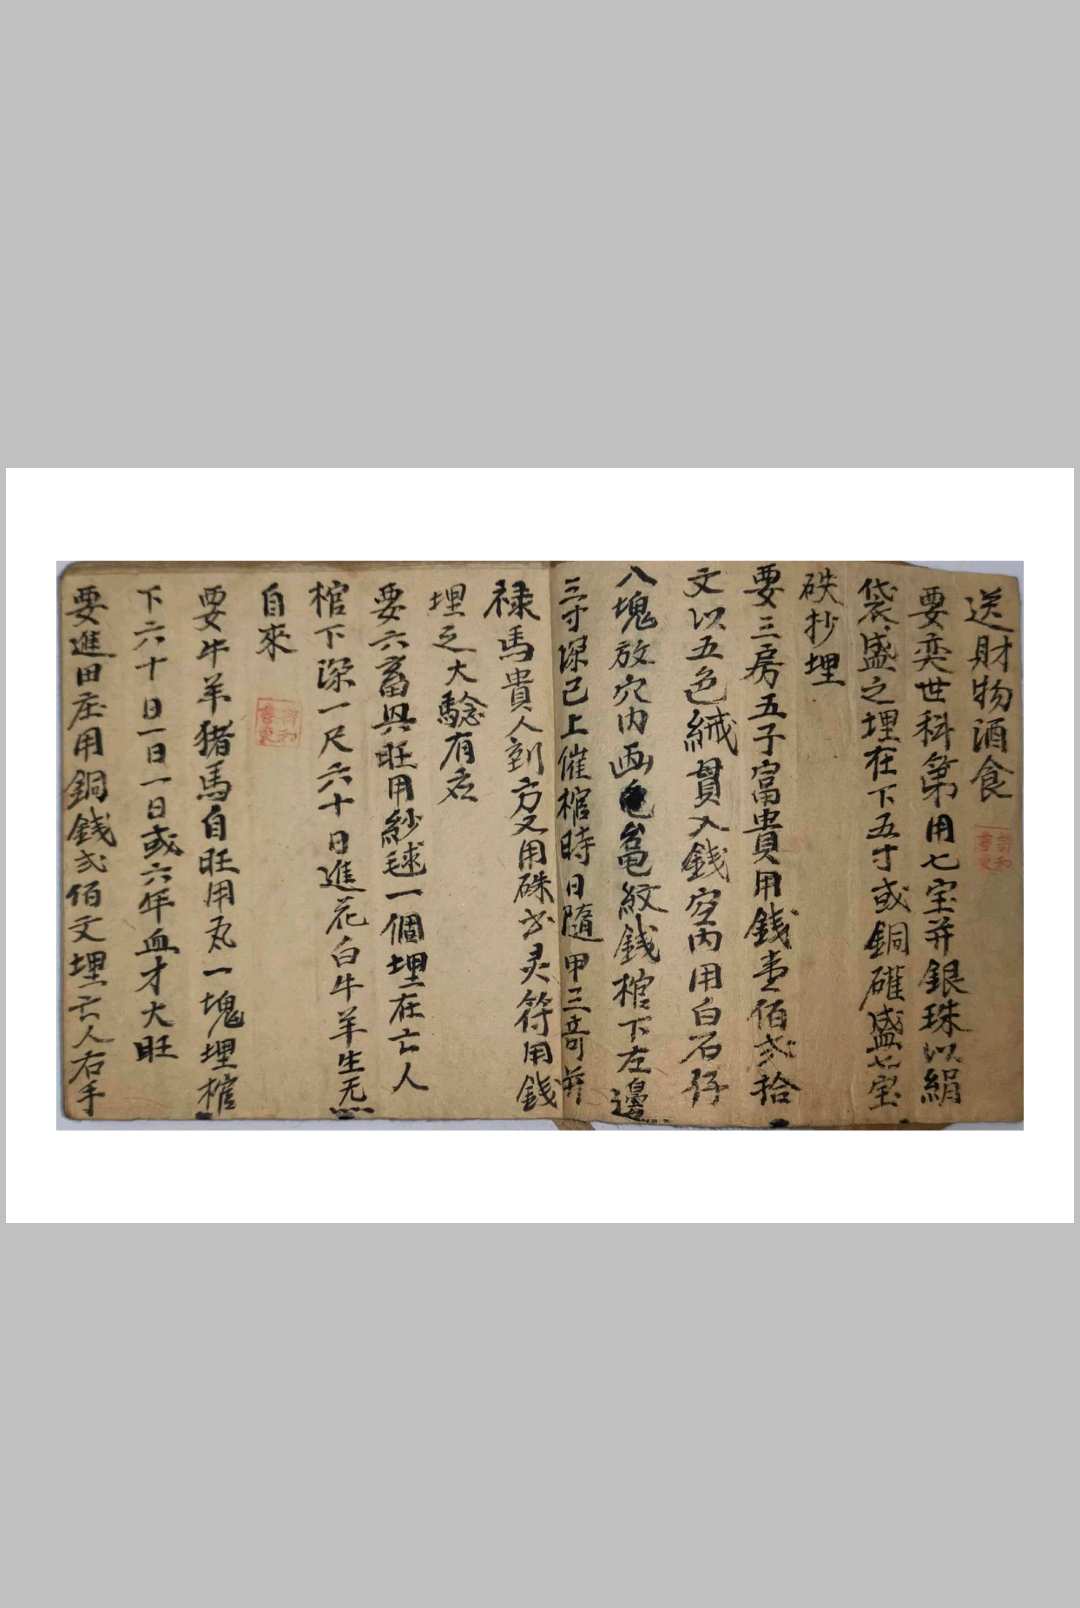 送財物酒食
要奕世科第用七宝并銀珠以絹
袋盛之埋在下五寸或銅礶盛七宝
砄抄埋
要三房五子富貴用錢壹佰弍拾
文以五色絨貫入錢空內用白石仔
八塊放穴內画龜紋錢棺下左邊
三寸深己上催棺時日隨甲三奇并
祿馬貴人到方又用硃书灵符用錢
埋之大驗有応
要六畜興旺用紗毬一個埋在亡人
棺下深一尺六十日進花白牛羊生冘
自來
要牛羊猪馬自旺用丸一塊埋棺
下六十日一日一日或六年血才大旺
要進田庄用銅錢弍佰文埋亡人右手